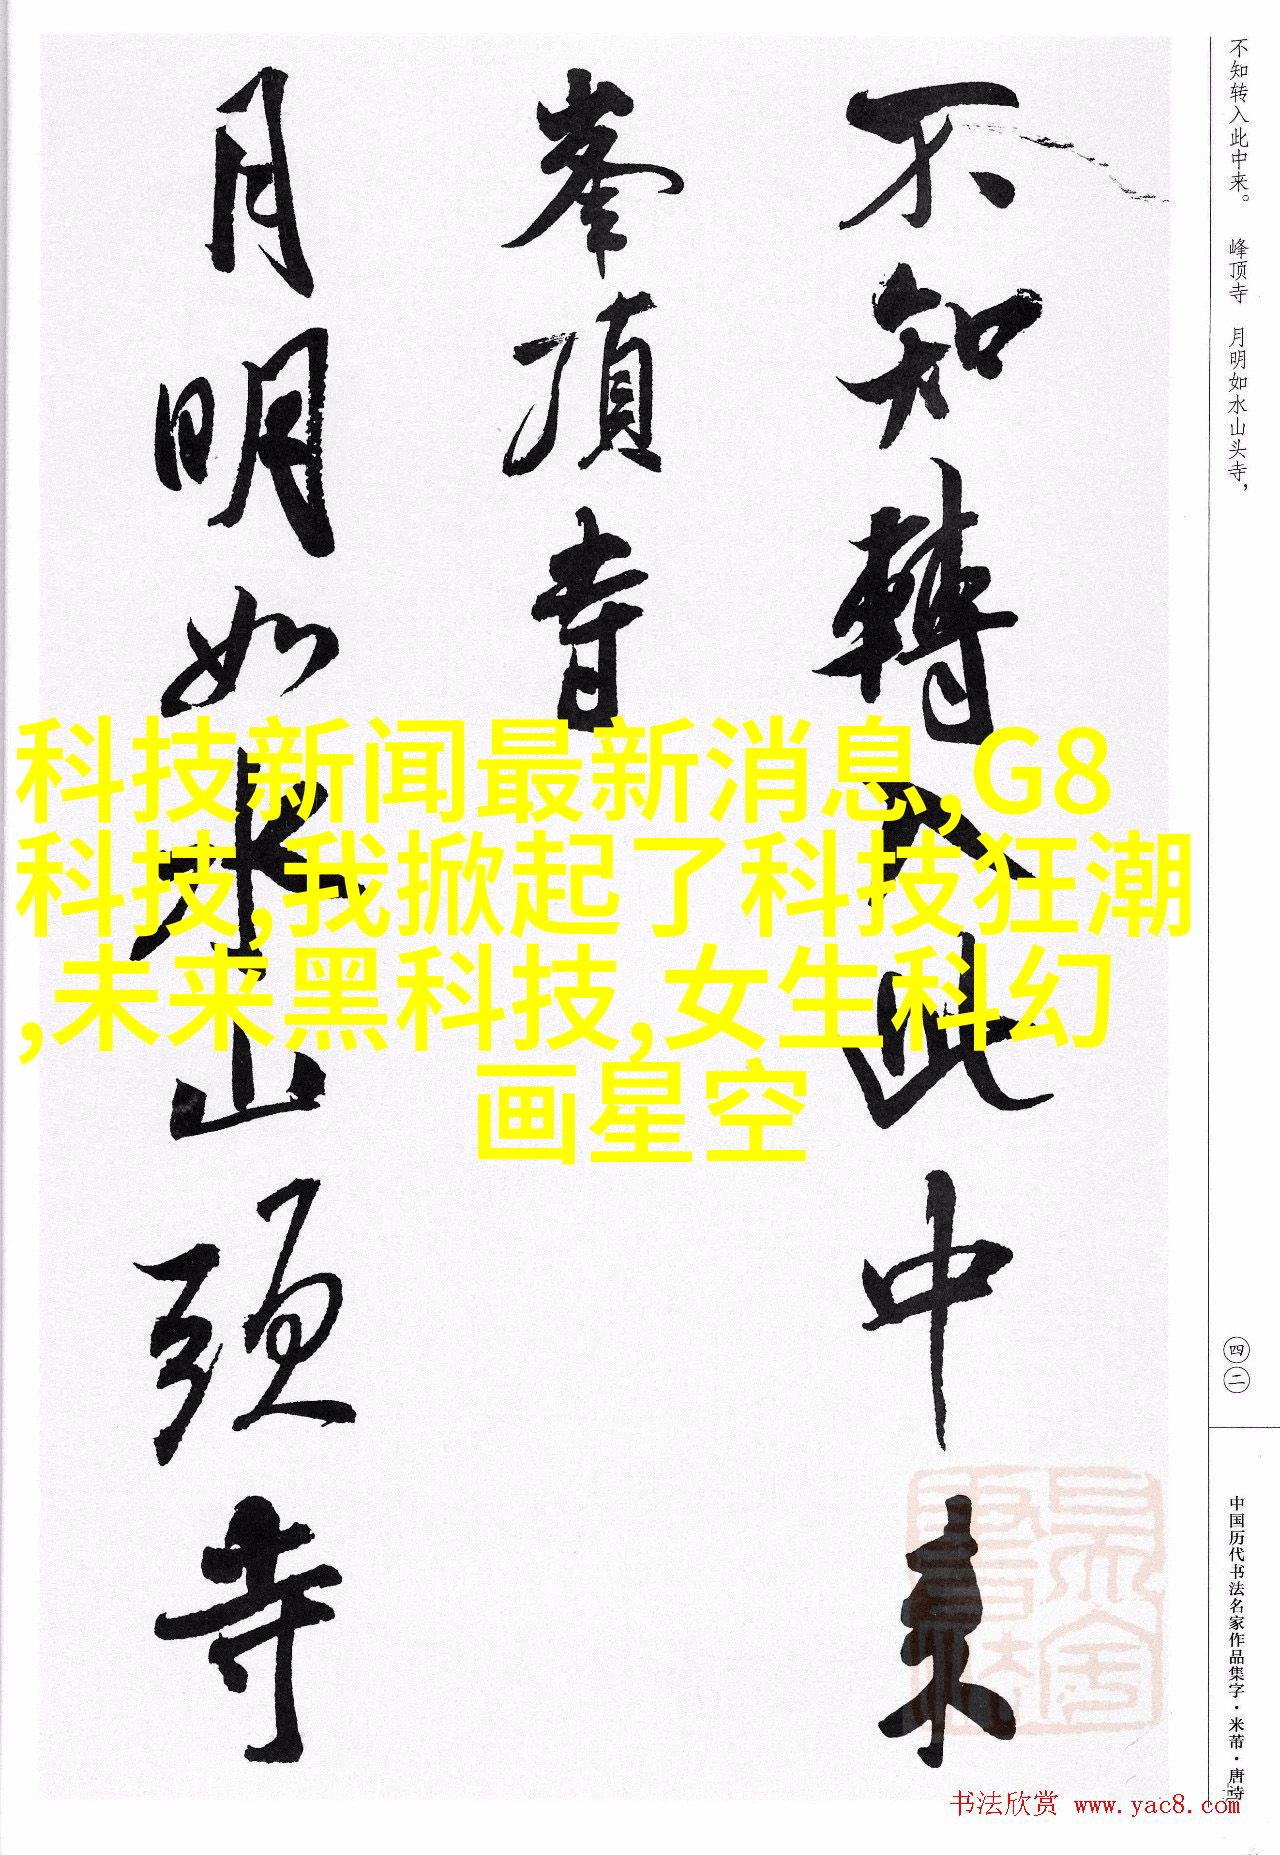 不知转入此中来。 峰顶寺 月明如水山头寺,
不知轉入此中來
峯頂寺
月明如水山頭寺
科技新闻最新消息,G8
科技,我掀起了科技狂潮
,未来黑科技,女生科幻
画星空
四二
中国历代书法名家作品集字·米芾·唐诗
书法欣赏 www.yac8.com